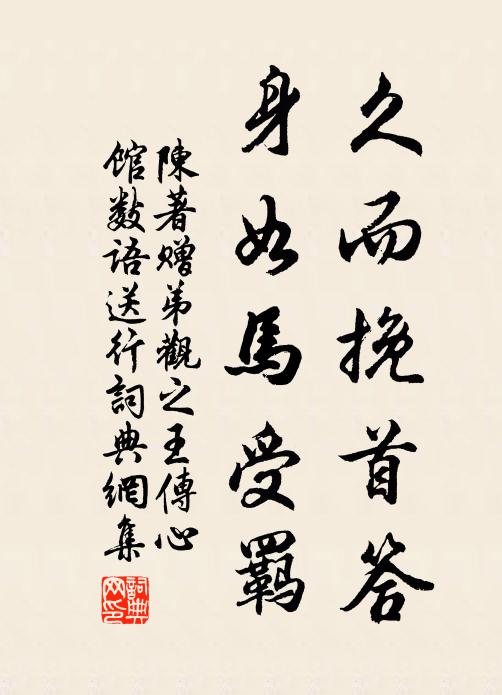 久而挽首答
身如馬受羈
陳著贈弟觀之王傳心
館數語送行詞典網集
詞典網印